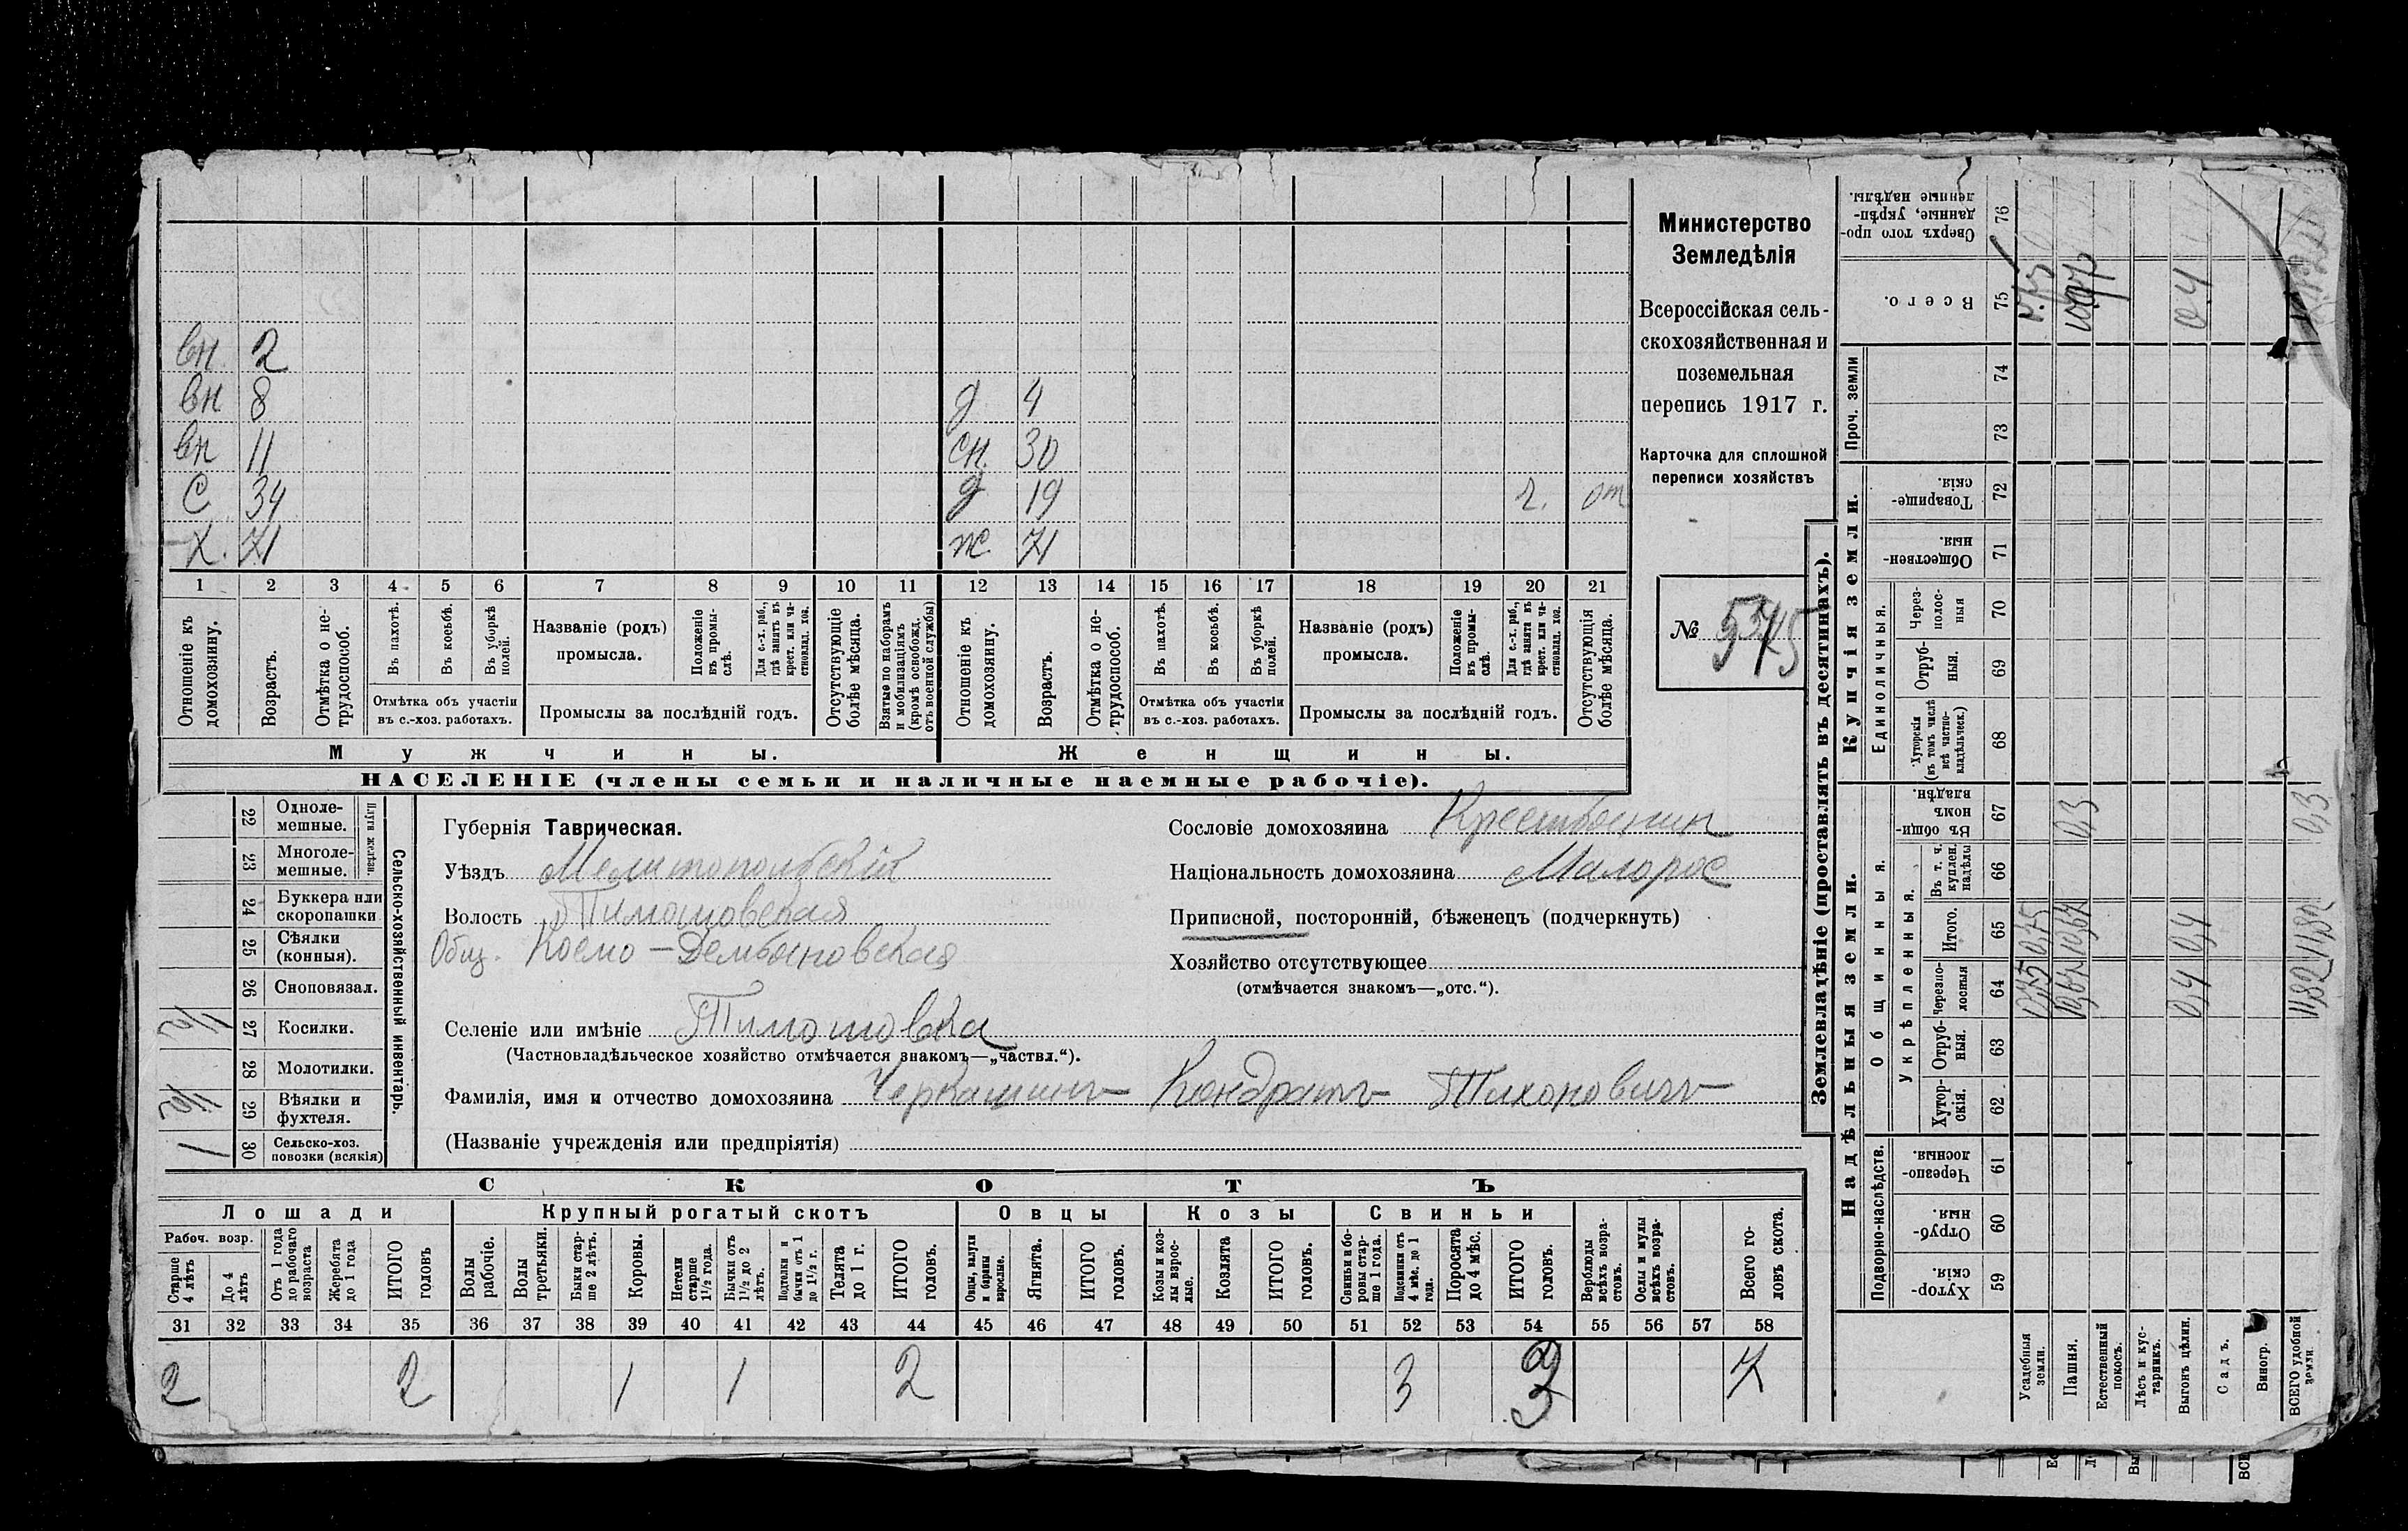 вн. 2
вн 8 д 4
вн 11 сн. 30
С 34 д 19 г. от
Х. 71 ж. 71
1 2 3 4 5 6 7 8 9 10 11 12 13 14 15 16 17 18 19 20 21
Отношеніе къ домохозяину.
Возрастъ.
Отмѣтка о не-
трудоспособ.
Въ пахотѣ.
Въ косьбѣ.
Въ уборкѣ полей.
Отмѣтка объ участіи
въ с.-хоз. работахъ.
Названіе (родъ)
промысла.
Положеніе
въ промы-
слѣ.
Для с.-х. раб.,
гдѣ занятъ въ
крест. или ча-
стновлад. хоз.
Промыслы за послѣдній годъ.
Отсутствующіе
болѣе мѣсяца.
Взятые по наборамъ
и мобилизаціямъ
(кромѣ освобожд.
отъ военной службы)
Отношеніе къ
домохозяину.
Возрастъ.
Отмѣтка о не-
трудоспособ.
Въ пахотѣ.
Въ косьбѣ.
Въ уборкѣ
полей.
Отмѣтка объ участіи
въ с.-хоз. работахъ.
Названіе (родъ)
промысла.
Положеніе
въ промы-
слѣ.
Для с.-х. раб.,
гдѣ занята въ
крест. или ча-
стновлад. хоз.
Промыслы за послѣдній годъ.
Отсутствующія
болѣе мѣсяца.
Мужчины.
Женщины.
НАСЕЛЕНІЕ (члены семьи и наличные наемные рабочіе).
Министерство
Земледѣлія
Всероссійская сель-
скохозяйственная и
поземельная
перепись 1917 г.
Карточка для сплошной
переписи хозяйствъ
№
22 Одноле-
мешные.
23 Многоле-
мешные.
Плуги желѣзн.
24 Буккера или
скоропашки
25 Сѣялки
(конныя).
26 Сноповязал.
27 Косилки. 1/2
28 Молотилки.
29 Вѣялки и
фухтеля. 1/2
30 Сельско-хоз.
повозки (всякія) 1
Сельско-хозяйственный инвентарь.
Губернія Таврическая.
Уѣздъ Мелитопольскій
Волость Тимошовская
Общ. Космо-Демьяновская
Селеніе или имѣніе Тимошовка
(Частновладѣльческое хозяйство отмѣчается знакомъ—„частвл.“).
Фамилія, имя и отчество домохозяина Черкашинъ Кондратъ Тихоновичъ
(Названіе учрежденія или предпріятія)
Сословіе домохозяина Крестьянин
Національность домохозяина Малорос
Приписной, посторонній, бѣженецъ (подчеркнуть)
Хозяйство отсутствующее
(отмѣчается знакомъ—„отс.“).
СКОТЪ
Лошади
Крупный рогатый скотъ
Овцы
Козы
Свиньи
Рабоч. возр.
Старше
4 лѣтъ
До 4
лѣтъ
Отъ 1 года
до рабочаго
возраста
Жеребята
до 1 года
ИТОГО
головъ
Волы
рабочіе.
Волы
третьяки.
Быки стар-
ше 2 лѣтъ.
Коровы.
Нетели
старше
1 1/2 года.
Бычки отъ
1 1/2 до 2
лѣтъ.
Подтелки и
бычки отъ 1
до 1 1/2 г.
Телята
до 1 г.
ИТОГО
головъ.
Овцы, валухи
и бараны
взрослые.
Ягнята.
ИТОГО
головъ.
Козы и коз-
лы взрос-
лые.
Козлята
ИТОГО
головъ.
Свиньи и бо-
ровы стар-
ше 1 года.
Подсвинки отъ
4 мѣс. до 1
года.
Поросята
до 4 мѣс.
ИТОГО
головъ.
Верблюды
всѣхъ возра-
стовъ.
Ослы и мулы
всѣхъ возра-
стовъ.
Всего го-
ловъ скота.
31 32 33 34 35 36 37 38 39 40 41 42 43 44 45 46 47 48 49 50 51 52 53 54 55 56 57 58
2 2 1 1 2 3 3 7
Землевладѣніе (проставлять въ десятинахъ).
Надѣльныя земли.
Купчія земли.
Проч. земли
Подворно-наслѣдств.
Общинныя.
Укрѣпленныя.
Единоличныя.
Хутор-
скія. 59
Отруб-
ныя. 60
Черезпо-
лосныя. 61
Хутор-
скія. 62
Отруб-
ныя. 63
Черезпо-
лосныя 64
Итого. 65
Въ т. ч.
куплен.
надѣлы 66
Въ общин-
номъ
владѣн. 67
Хуторскія
(въ томъ числѣ
всѣ частно-
владѣльческ.) 68
Отруб-
ныя. 69
Через-
полос-
ныя 70
Обществен-
ныя. 71
Товарище-
скія. 72
73
74
Всего. 75
Сверхъ того про-
данные, укрѣп-
ленные надѣлы. 76
Усадебныя
земли.
Пашня. 0,3
Естественный
покосъ.
Лѣсъ и кус-
тарникъ.
Выгонъ цѣлин. 0,4 0,4 0,4
Садъ.
Виногр.
ВСЕГО удобной
земли. 11,82 11,82 0,3